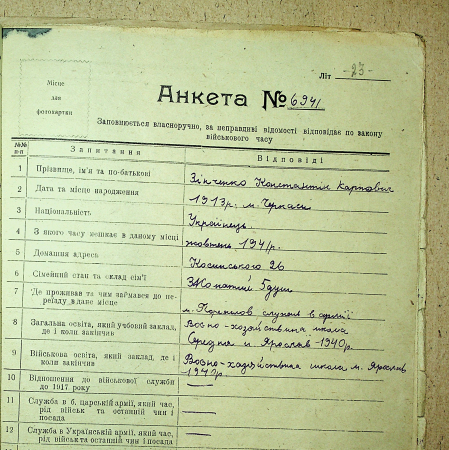 Літ -23-
Місце
для
фотокартки
Анкета № 6941
Заповнюється власноручно, за неправдиві відомості відповідає по закону
військового часу
№№ п-п Запитання Відповіді
1 Прізвище, ім'я та по-батькові Зінченко Константін Карпович
2 Дата та місце народження 1913р. м. Черкаси
3 Національність Українець
4 З якого часу мешкає в даному місці жовтень 1941р.
5 Домашня адреса 26
6 Сімейний стан та склад сім'ї Жонатий 5 душ
7 Де проживав та чим займався до пе-
реїзду в дане місце м. служив в армії
8 Загальна освіта, який учбовий заклад,
де і коли закінчив школа
Середня м Ярослав 1940р.
9 Військова освіта, який заклад, де і
коли закінчив школа м. Ярослав
1940р.
10 Відношення до військової служби
до 1917 року —
11 Служба в б. царській армії, який час,
рід військ та останній чин і
посада —
12 Служба в Українській армії, який час,
рід військ та останній чин і посада —